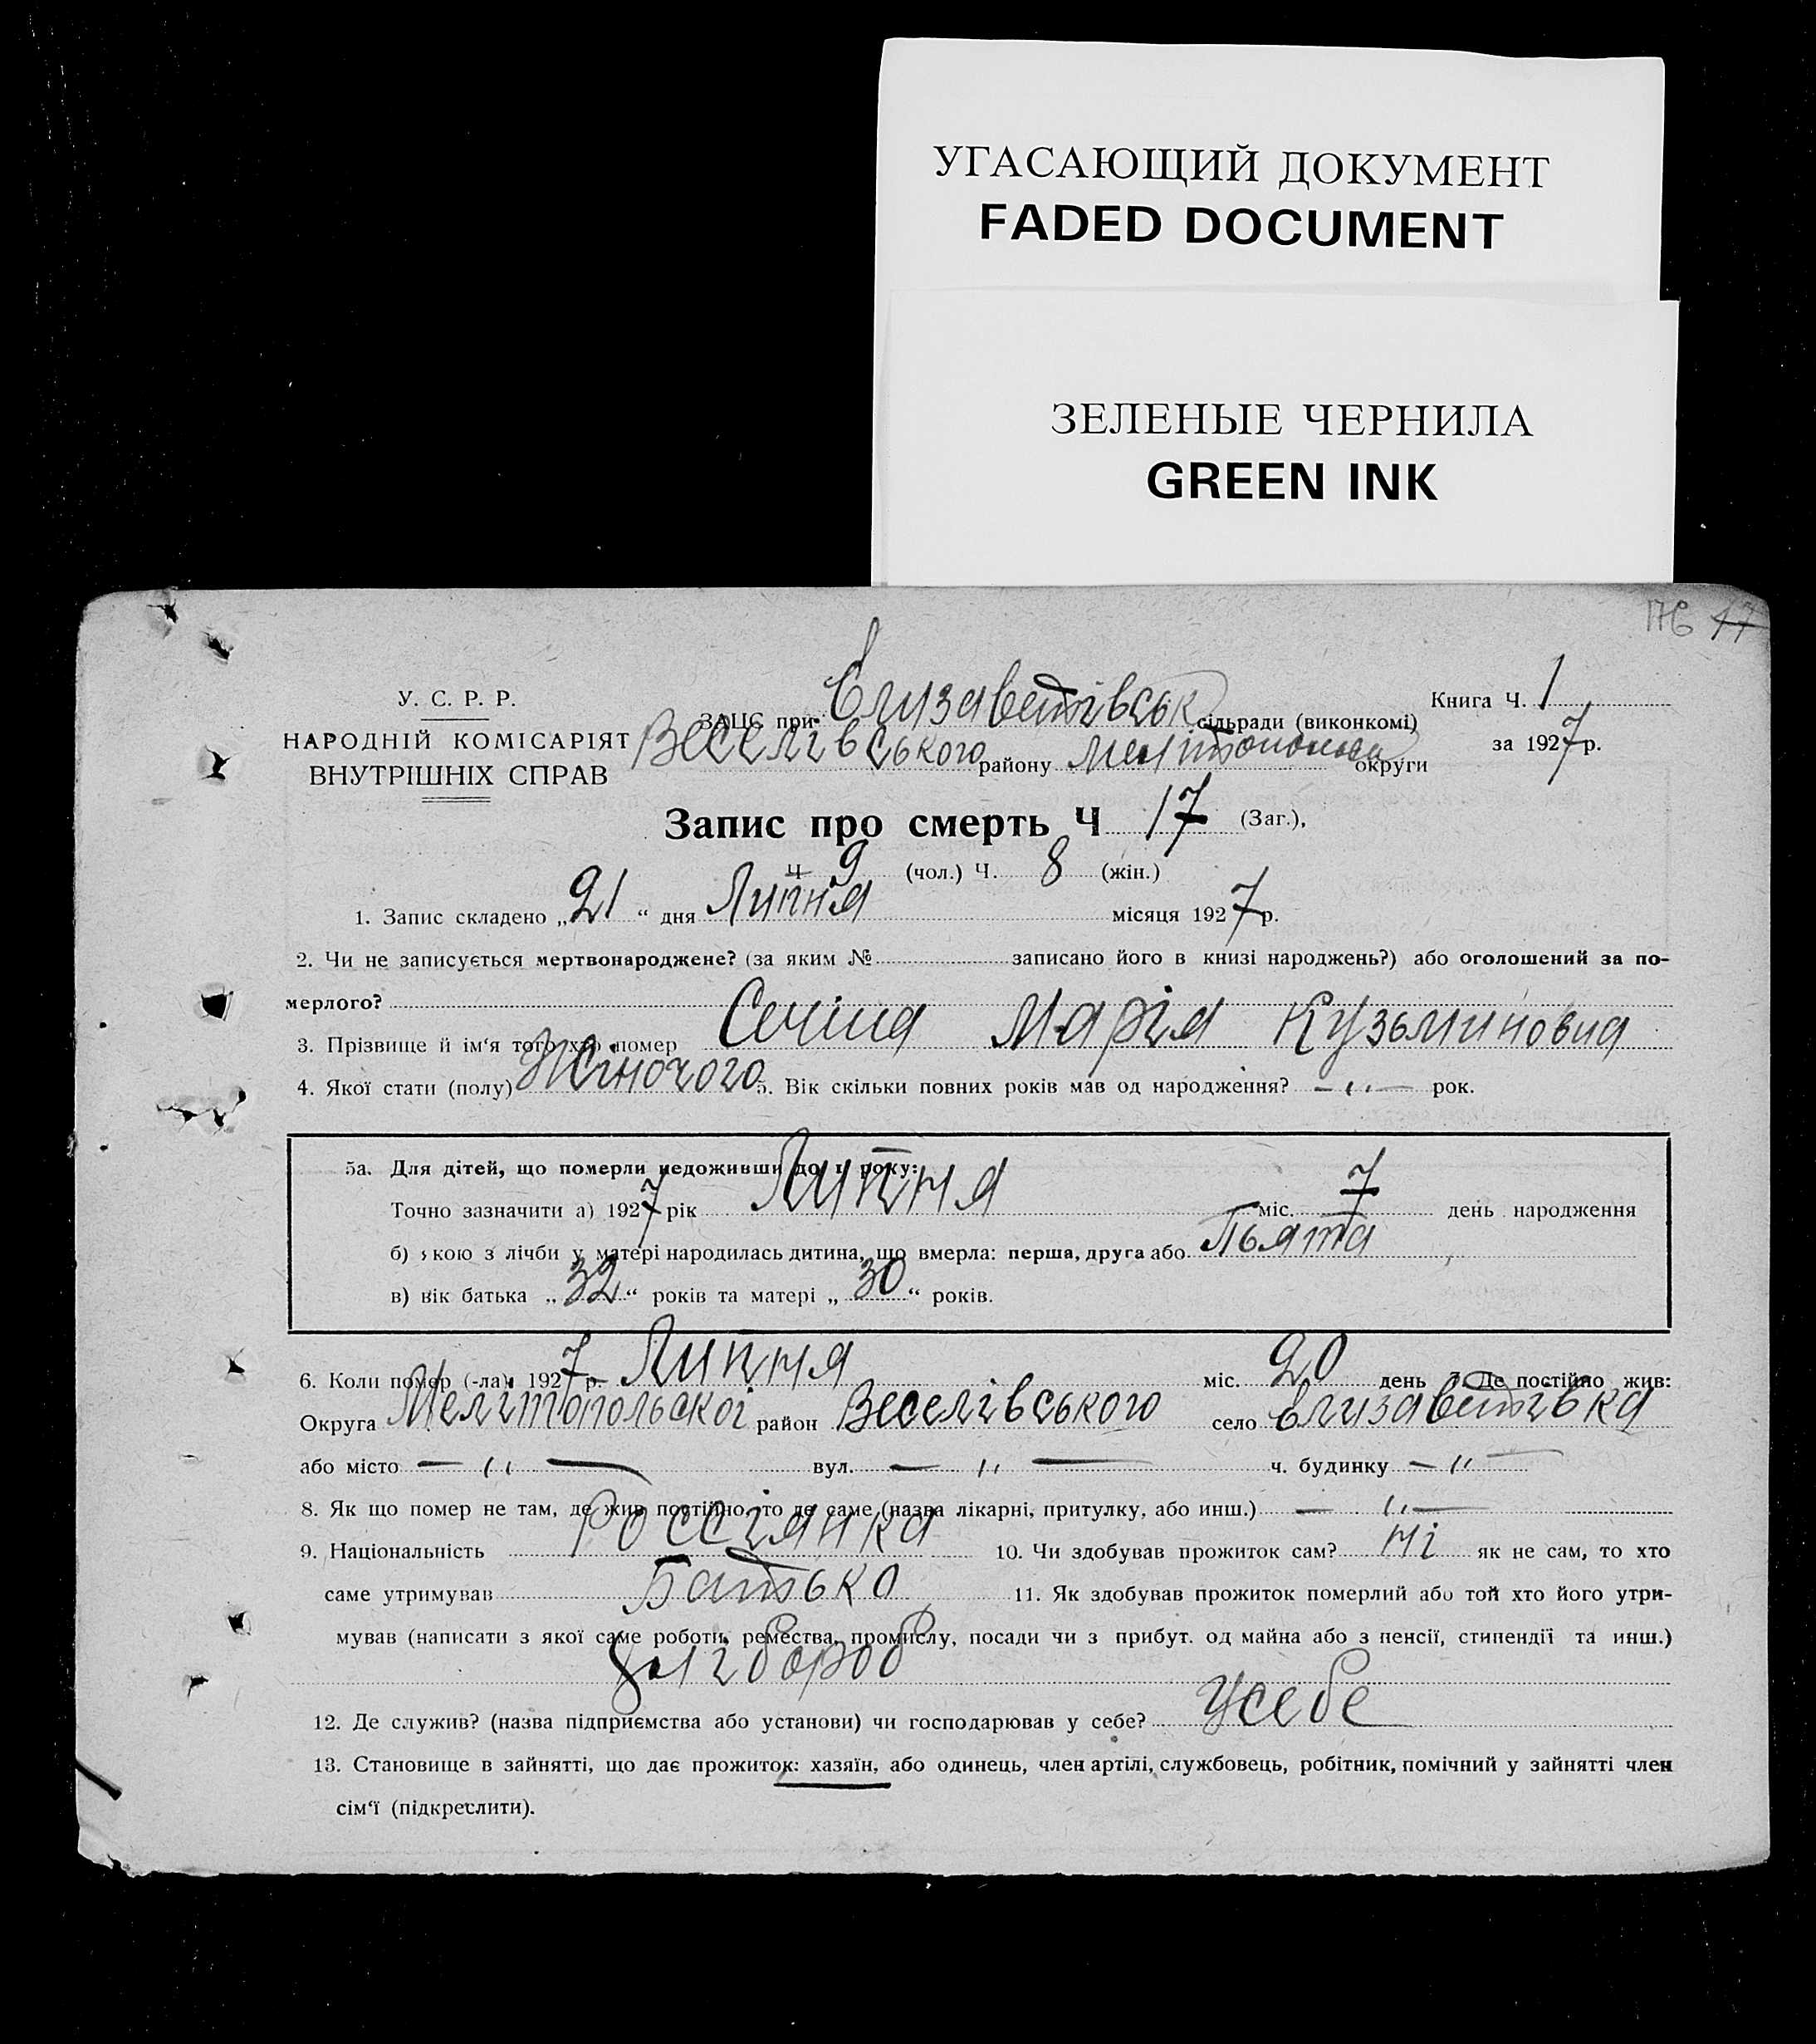 УГАСАЮЩИЙ ДОКУМЕНТ
FADED DOCUMENT
ЗЕЛЕНЫЕ ЧЕРНИЛА
GREEN INK
176 17
У. С. Р. Р.
НАРОДНІЙ КОМІСАРІЯТ
ВНУТРІШНІХ СПРАВ
ЗАЦС при Єлизаветівськ сільради (виконкомі)
Веселівського району округи
Книга Ч. 1
за 1927 р.
Запис про смерть Ч 17 (Заг.),
Ч 9 (чол.) Ч. 8 (жін.)
1. Запис складено „21“ дня Липня місяця 1927 р.
2. Чи не записується мертвонароджене? (за яким № записано його в книзі народжень?) або оголошений за по-
мерлого?
3. Прізвище й ім‘я того хто помер Марія Кузьминовна
4. Якої стати (полу) Жіночого 5. Вік скільки повних років мав од народження? — „ — рок.
5а. Для дітей, що померли недоживши до 1 року:
Точно зазначити а) 1927 рік Липня міс. 7 день народження
б) якою з лічби у матері народилась дитина, що вмерла: перша, друга або Пьята
в) вік батька „32“ років та матері „30“ років.
6. Коли помер (-ла) 1927 р. Липня міс. 20 день 7. Де постійно жив:
Округа Мелітопольскоі район Веселівського село Єлизаветівка
або місто — „ — вул. — „ — ч. будинку — „ —
8. Як що помер не там, де жив постійно, то де саме (назва лікарні, притулку, або инш.) — „ —
9. Національність Россіянка 10. Чи здобував прожиток сам? Ні як не сам, то хто
саме утримував Батько 11. Як здобував прожиток померлий або той хто його утри-
мував (написати з якої саме роботи, ремества, промислу, посади чи з прибут. од майна або з пенсії, стипендії та инш.)
Хлібороб
12. Де служив? (назва підприємства або установи) чи господарював у себе? Усебе
13. Становище в зайнятті, що дає прожиток: хазяїн, або одинець, член артілі, службовець, робітник, помічний у зайнятті член
сім‘ї (підкреслити).